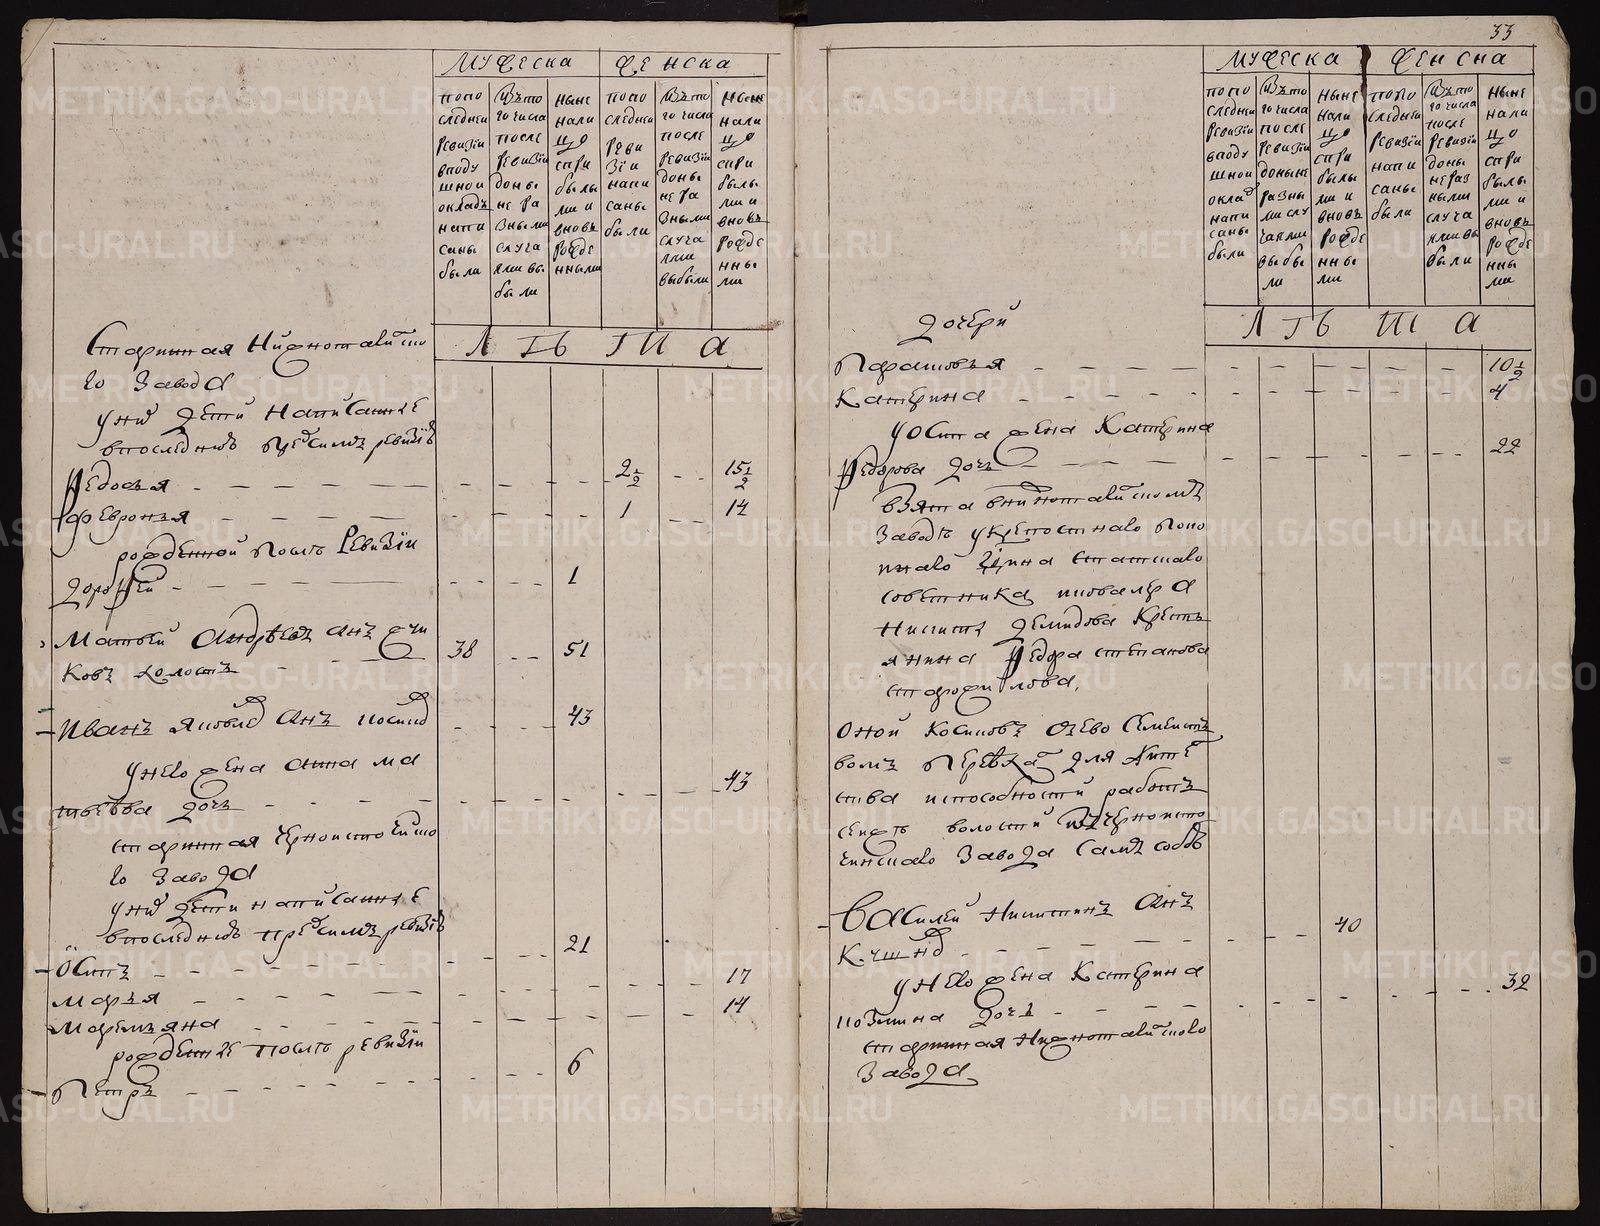 33
мужеска женска
попо
следней
ревизіи
вподу
шной
окладъ
напи
саны
было
Изъто
го числа
после
ревизіи
доны
не ра
зными
случа
ями вы
были
ныне
нали
цо
спри
былы
ми и
вновь
рожде
нными
попо
следней
реви
зіи
напи
саны
были
Изъто
го числа
после
ревизіи
доны
не ра
зными
случа
ями
выбыли
ныне
нали
цо
спри
былы
ми и
вновь
рожде
нны
ми
Л Ѣ Т А
Старинная Нижнотагилско
го завода
уних дети написанные
впоследнюю предсимъ ревизію
Федосья 2½ 15½
Февронья 1 14
рожденной после Ревизіи
Дорофей 1
Матвей Андреевъ сынъ
ковъ холостъ 38 51
Иванъ Яковлев сынъ 43
унего жена Анна Ма
твеева дочь 43
старинная Черноисточинско
го завода
уних дети написанные
впоследнюю предсимъ ревизію
Осипъ 21
Марья 17
Маремьяна 14
рожденные после ревизіи
Петръ 6
мужеска женска
попо
следней
ревизіи
вподу
шной
оклад
напи
саны
были
Изъто
го числа
после
ревизіи
доныне
разны
ми слу
чаями
выбы
ли
ныне
нали
цо
спри
былы
ми и
вновь
рожде
нны
ми
попо
следней
ревизіи
напи
саны
были
Изъто
го числа
после
ревизіи
доны
не раз
ными
случа
ями вы
были
ныне
нали
цо
спри
былы
ми и
вновь
рожде
нны
ми
Л Ѣ Т А
дочери
Парасковья 10½
Катерина 4
уосипа жена Катерина
Федорова дочь 22
взята внижнотагилскомъ
заводе укрепостнаго поко
йнаго статскаго
советника кавалера
Никиты Демидова Крестья
янина Федора степанова
оной Косиковъ сево семейст
вомъ перевед для жите
ства испособности работъ
черноисто
чинскаго завода самъ собою
Василей Никитинъ сынъ
40
унего жена Катерина
Козмина дочь 32
старинная нижнотагилскаго
завода
METRIKI.GASO-URAL.RU